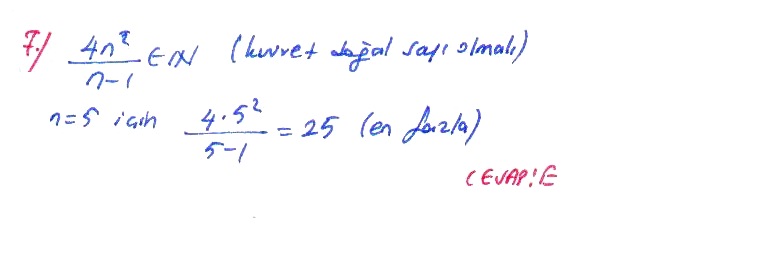 7.) 4n²/n-1 ∈ IN (kuvvet doğal sayı olmalı)
n=5 için 4.5²/5-1 = 25 (en fazla)
CEVAP: E